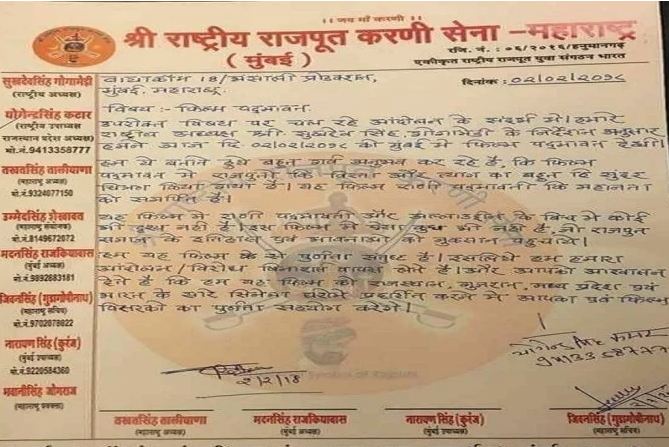 ।। जय माँ करणी ।।
श्री राष्ट्रीय राजपूत करणी सेना –महाराष्ट्र
( मुंबई )
रजि. नं. : ०६/२०१६/हनुमानगढ़
एकीकृत राष्ट्रीय राजपूत युवा संगठन भारत
सुखदेवसिंह गोगामेड़ी
(राष्ट्रीय अध्यक्ष)
योगेन्द्रसिंह कटार
(राष्ट्रीय उपाध्यक्ष
राजस्थान प्रदेश अध्यक्ष)
मो.नं.9413358777
तखतसिंह तालीयाणा
(महाराष्ट्र अध्यक्ष)
मो.नं. 9324077150
उम्मेदसिंह शेखावत
(महाराष्ट्र संयोजक)
मो.नं.8149672072
मदनसिंह राजकियावास
(मुंबई अध्यक्ष)
मो.नं.9892883181
जिवनसिंह (गुडागोपीनाथ)
(महाराष्ट्र सचिव)
मो.नं. 9702078822
नारायण सिंह (कुरंज)
(मुंबई उपाध्यक्ष)
मो.नं. 9220584360
भवानीसिंह जोगराज
(महाराष्ट्र प्रवक्ता)
वायाकॉम 18/भंसाली प्रोडक्शन,
मुंबई, महाराष्ट्र.
दिनांक: 02/02/2018
विषय :- फिल्म पद्मावत.
उपरोक्त विषय पर चल रहे आंदोलन के संदर्भ में। हमारे
राष्ट्रीय अध्यक्ष श्री. सुखदेव सिंह गोगामेडी के निर्देशन अनुसार
हमने आज दि. 02/02/2018 को मुंबई में फिल्म पद्मावत देखी।
हम ये बताते हुये बहुत गर्व अनुभव कर रहे हैं, कि फिल्म
पद्मावत में राजपुतो कि विरता और त्याग का बहुत हि सुंदर
चित्रण किया गया है। यह फिल्म रानी पद्मावती कि महानता
को समर्पित है।
यह फिल्म में रानी पद्मावती और अल्लाउद्दीन के बिच में कोई
भी दृश्य नहीं है। इस फिल्म में ऐसा कुछ भी नहीं है, जो राजपुत
समाज के इतिहास एवं भावनाओं को नुकसान पहुंचाये।
हम यह फिल्म के से पुर्णता संतुष्ट है। इसलिये हम हमारा
आंदोलन/विरोध बिनाशर्त वापस लेते है। और आपको आश्वासन
देते है कि हम यह फिल्म को राजस्थान, गुजरात, मध्य प्रदेश एवं
भारत के सारे सिनेमा घरोमें प्रदर्शित करने में आपका एवं फिल्म
वितरको का पुर्णता सहयोग करेंगे।
2/2/18
योगेन्द्र सिंह कटार
9413358777
तखतसिंह तालीयाणा
(महाराष्ट्र अध्यक्ष)
मदनसिंह राजकियावास
(मुंबई अध्यक्ष)
नारायण सिंह (कुरंज)
(मुंबई उपाध्यक्ष)
जिवनसिंह (गुडागोपीनाथ)
(महाराष्ट्र सचिव)